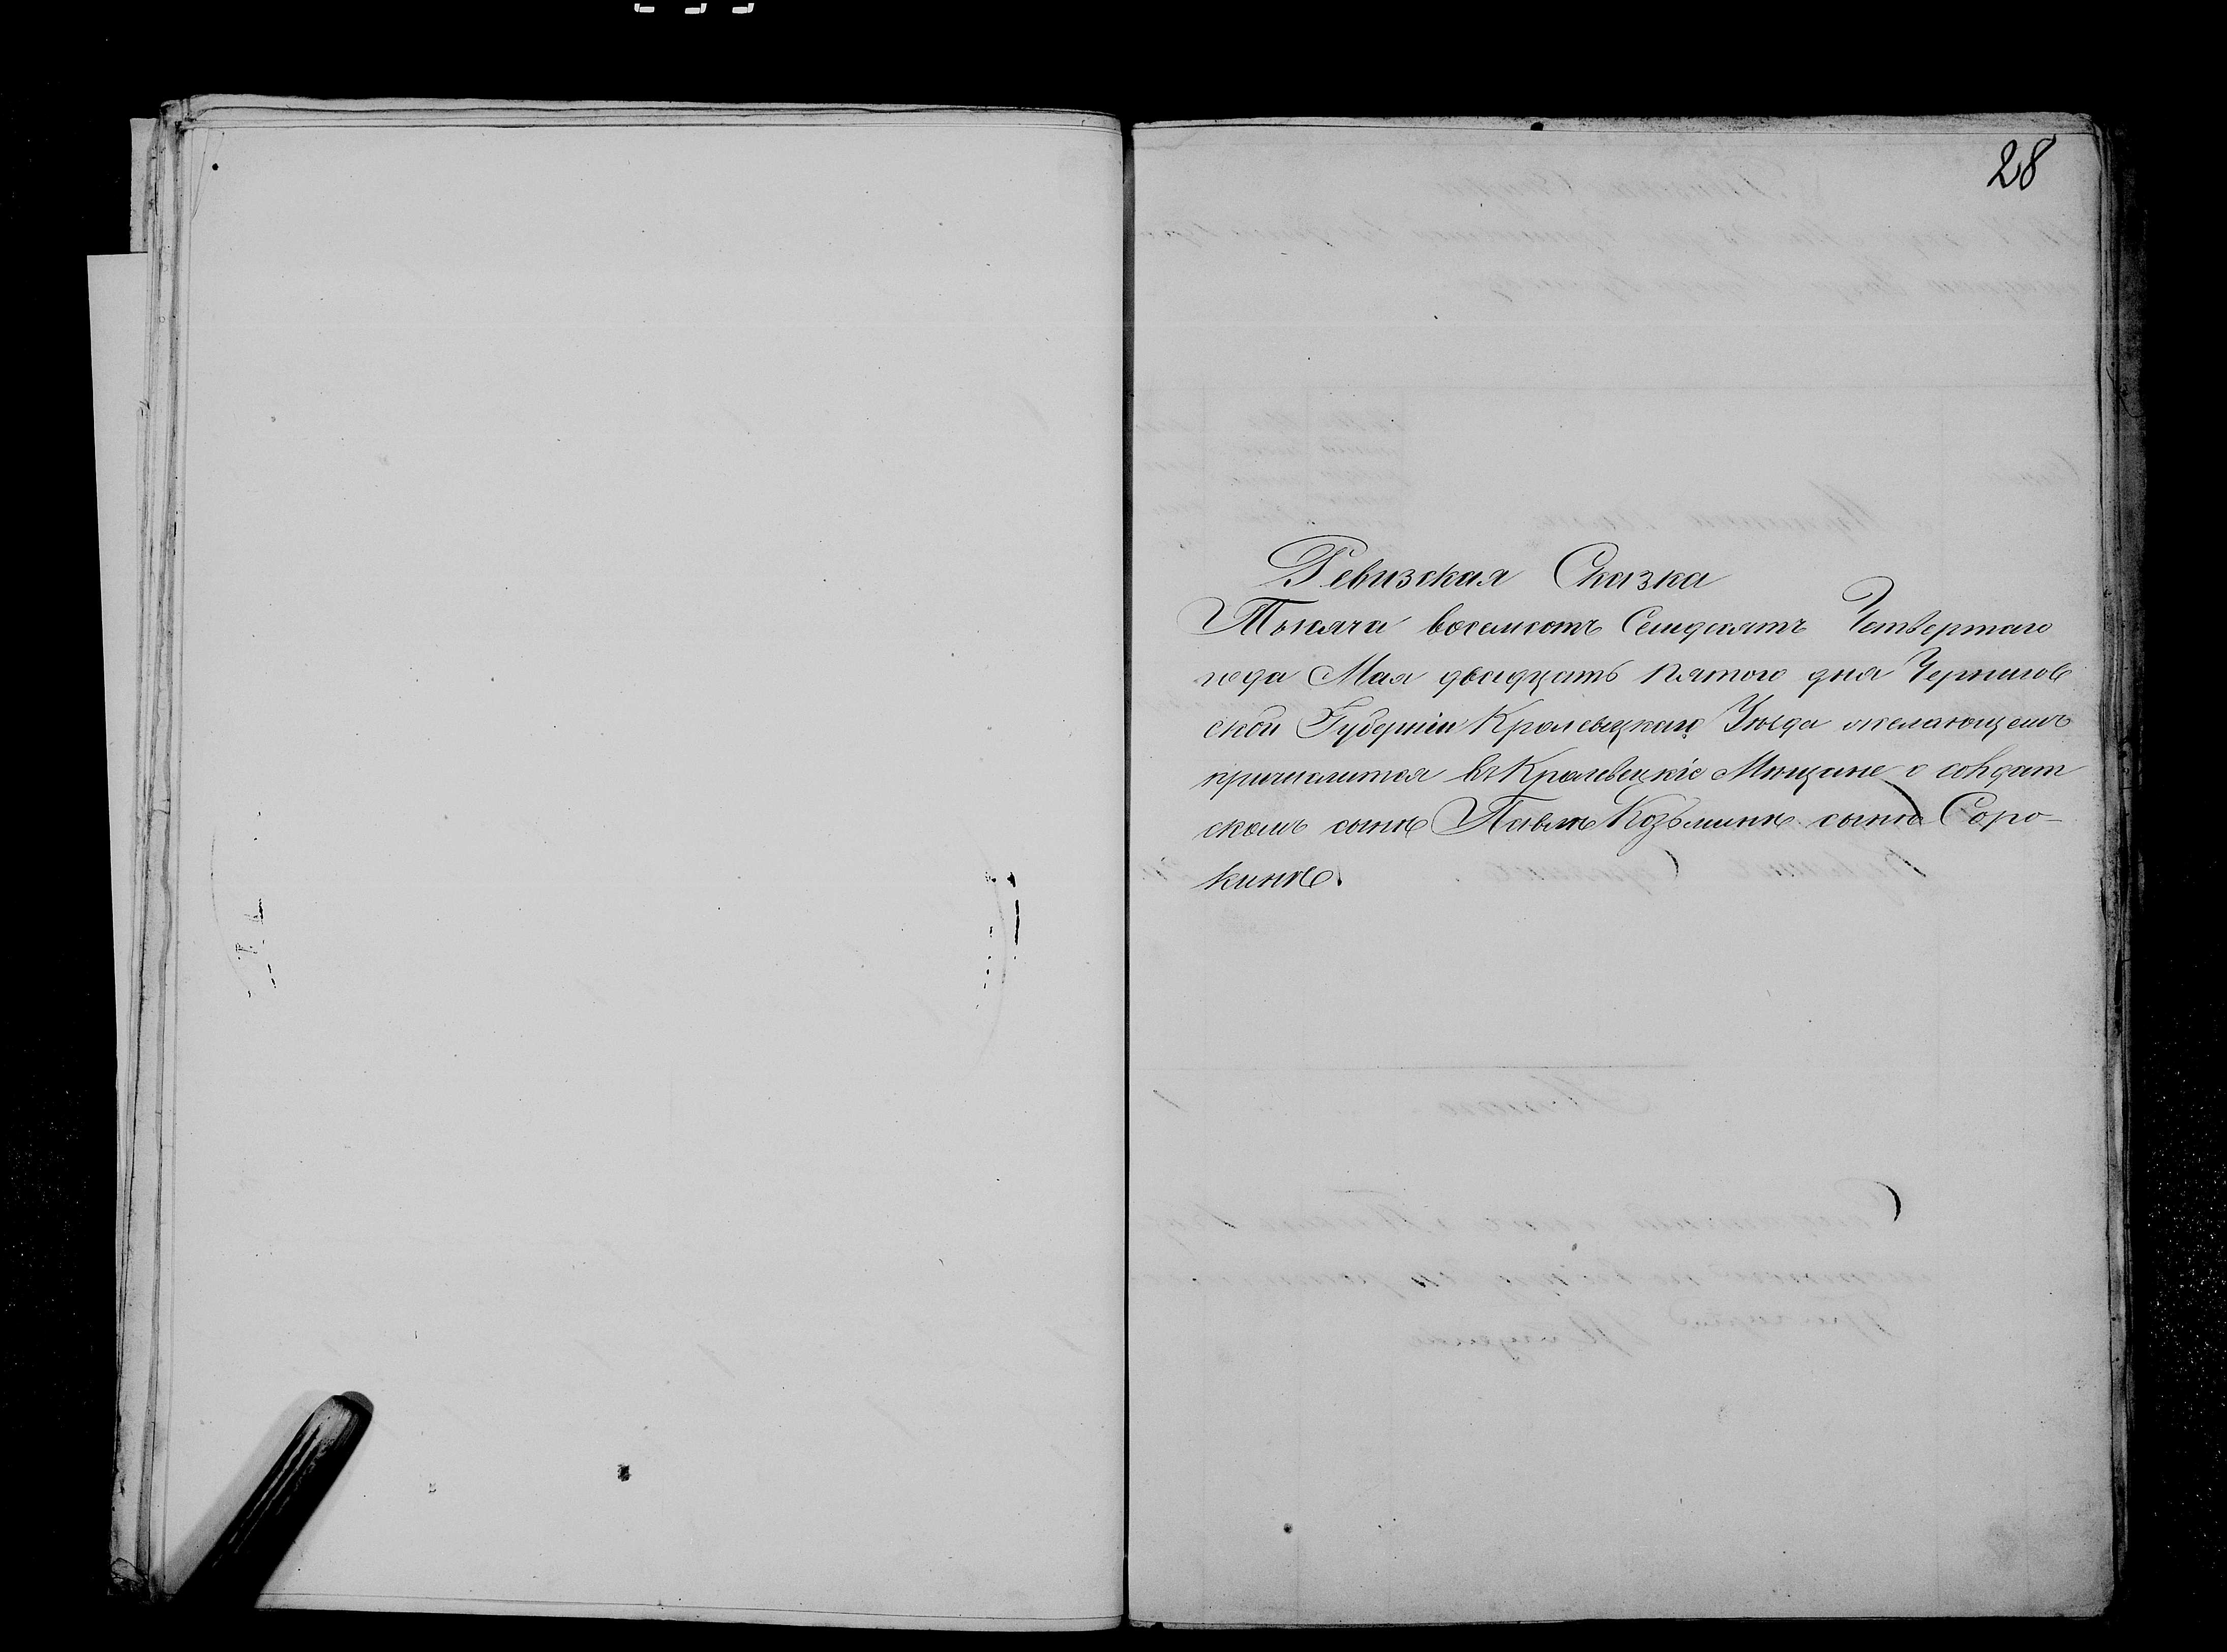 28
Ревизская Сказка
Тысяча восемсотъ Семдесятъ Четвертаго
года Мая двадцать пятого дня Чернигов
ской Губерніи Кролевецкаго Уѣзда желающемъ
причислится въ Кролевецкіе Мѣщане о солдат
скомъ сынѣ Павлѣ Козьминѣ сынѣ Соро-
кинѣ.